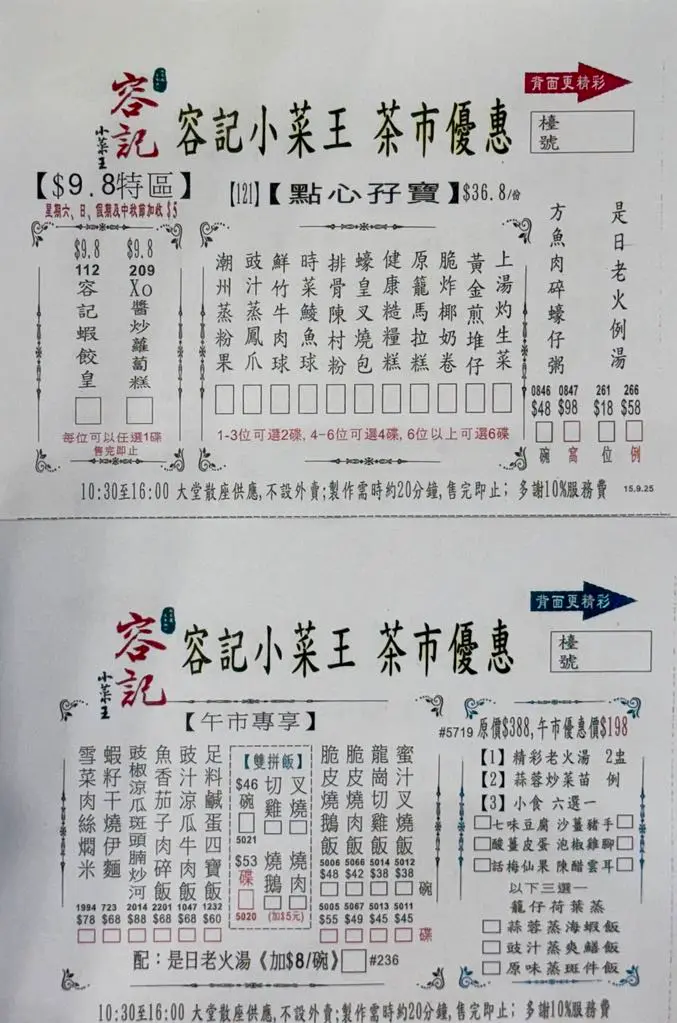 背面更精彩
容記
小菜王
容記小菜王 茶市優惠
檯號
【$9.8特區】
星期六、日、假期及中秋節加收 $5
【121】【點心孖寶】$36.8/份
$9.8
112
容記蝦餃皇
$9.8
209
Xo醬炒蘿蔔糕
每位可以任選1碟
售完即止
潮州蒸粉果
豉汁蒸鳳爪
鮮竹牛肉球
時菜鯪魚球
排骨陳村粉
蠔皇叉燒包
健康糙糧糕
原籠馬拉糕
脆炸椰奶卷
黃金煎堆仔
上湯灼生菜
1-3位可選2碟, 4-6位可選4碟, 6位以上可選6碟
方魚肉碎蠔仔粥
0846 0847
$48 $98
碗 窩
是日老火例湯
261 266
$18 $58
位 例
10:30至16:00 大堂散座供應,不設外賣;製作需時約20分鐘,售完即止; 多謝10%服務費 15.9.25
背面更精彩
容記
小菜王
容記小菜王 茶市優惠
檯號
【午市專享】
雪菜肉絲燜米
1994
$78
蝦籽干燒伊麵
723
$68
豉椒涼瓜斑頭腩炒河
2014
$88
魚香茄子肉碎飯
2201
$68
豉汁涼瓜牛肉飯
1047
$68
足料鹹蛋四寶飯
1232
$60
【雙拼飯】
$46
碗
5021
切雞
叉燒
$53
碟
5020
燒鵝
燒肉
(加$5元)
脆皮燒鵝飯
5006
$48
5005
$55
脆皮燒肉飯
5066
$42
5067
$49
龍崗切雞飯
5014
$38
5013
$45
蜜汁叉燒飯
5012
$38
5011
$45
碗
碟
配：是日老火湯《加$8/碗》 #236
#5719 原價$388,午市優惠價$198
【1】精彩老火湯 2盅
【2】蒜蓉炒菜苗 例
【3】小食 六選一
七味豆腐 沙薑豬手
酸薑皮蛋 泡椒雞腳
話梅仙果 陳醋雲耳
以下三選一
籠仔荷葉蒸
蒜蓉蒸海蝦飯
豉汁蒸爽鱔飯
原味蒸斑件飯
10:30至16:00 大堂散座供應,不設外賣;製作需時約20分鐘,售完即止; 多謝10%服務費